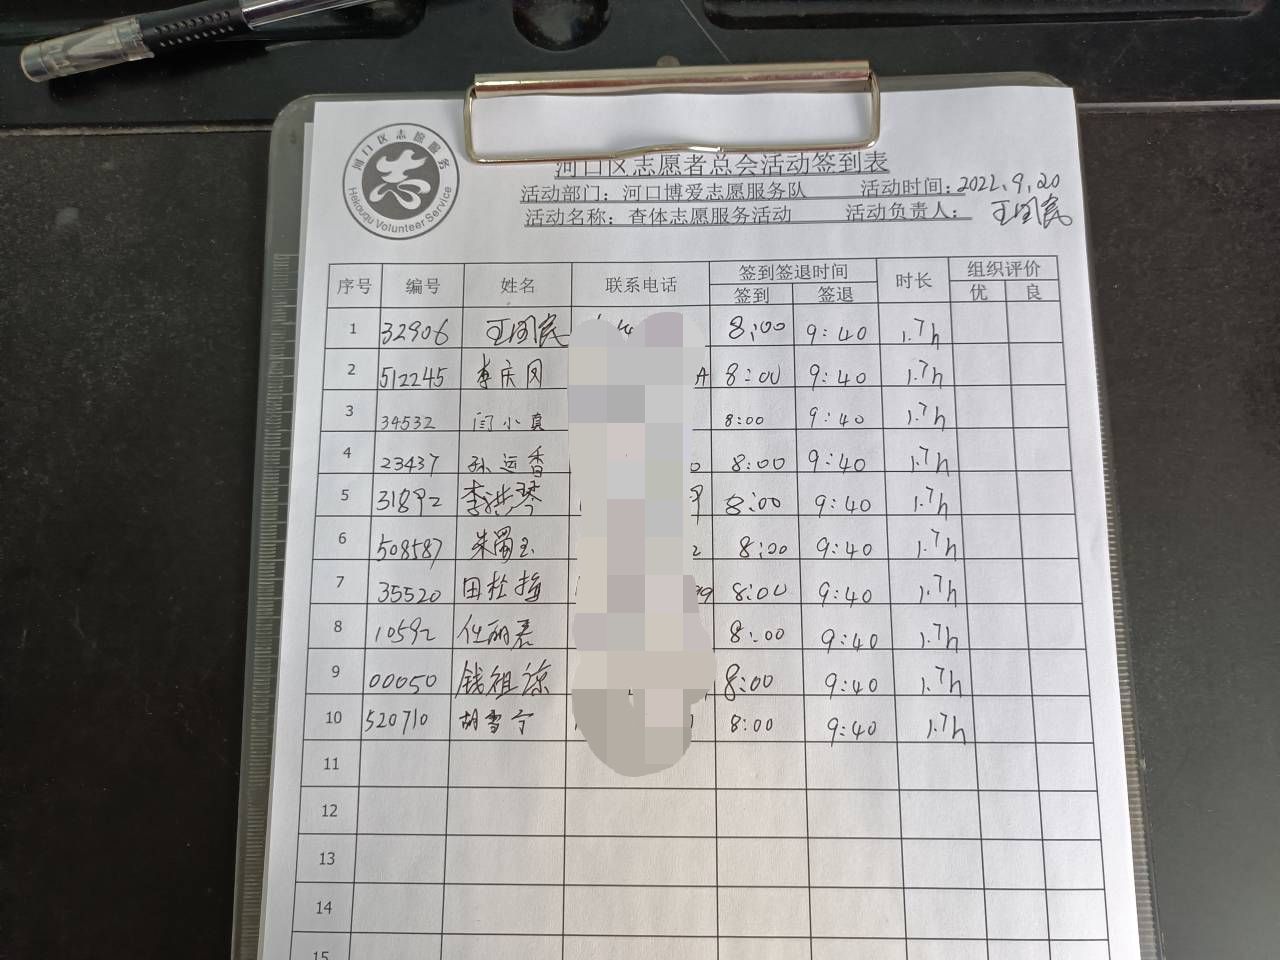 河口区志愿服务
Hekouqu Volunteer Service
河口区志愿者总会活动签到表
活动部门：河口博爱志愿服务队 活动时间：2022.9.20
活动名称：查体志愿服务活动 活动负责人：王国民
序号 编号 姓名 联系电话 签到签退时间 时长 组织评价
签到 签退 优 良
1 32906 王国民 8:00 9:40 1.7h
2 512245 李庆凤 8:00 9:40 1.7h
3 34532 闫小真 8:00 9:40 1.7h
4 23437 孙运香 8:00 9:40 1.7h
5 31892 李洪琴 8:00 9:40 1.7h
6 508587 朱 玉 8:00 9:40 1.7h
7 35520 田杜梅 8:00 9:40 1.7h
8 10592 任丽春 8:00 9:40 1.7h
9 00050 钱祖 8:00 9:40 1.7h
10 520710 胡雪宁 8:00 9:40 1.7h
11
12
13
14
15